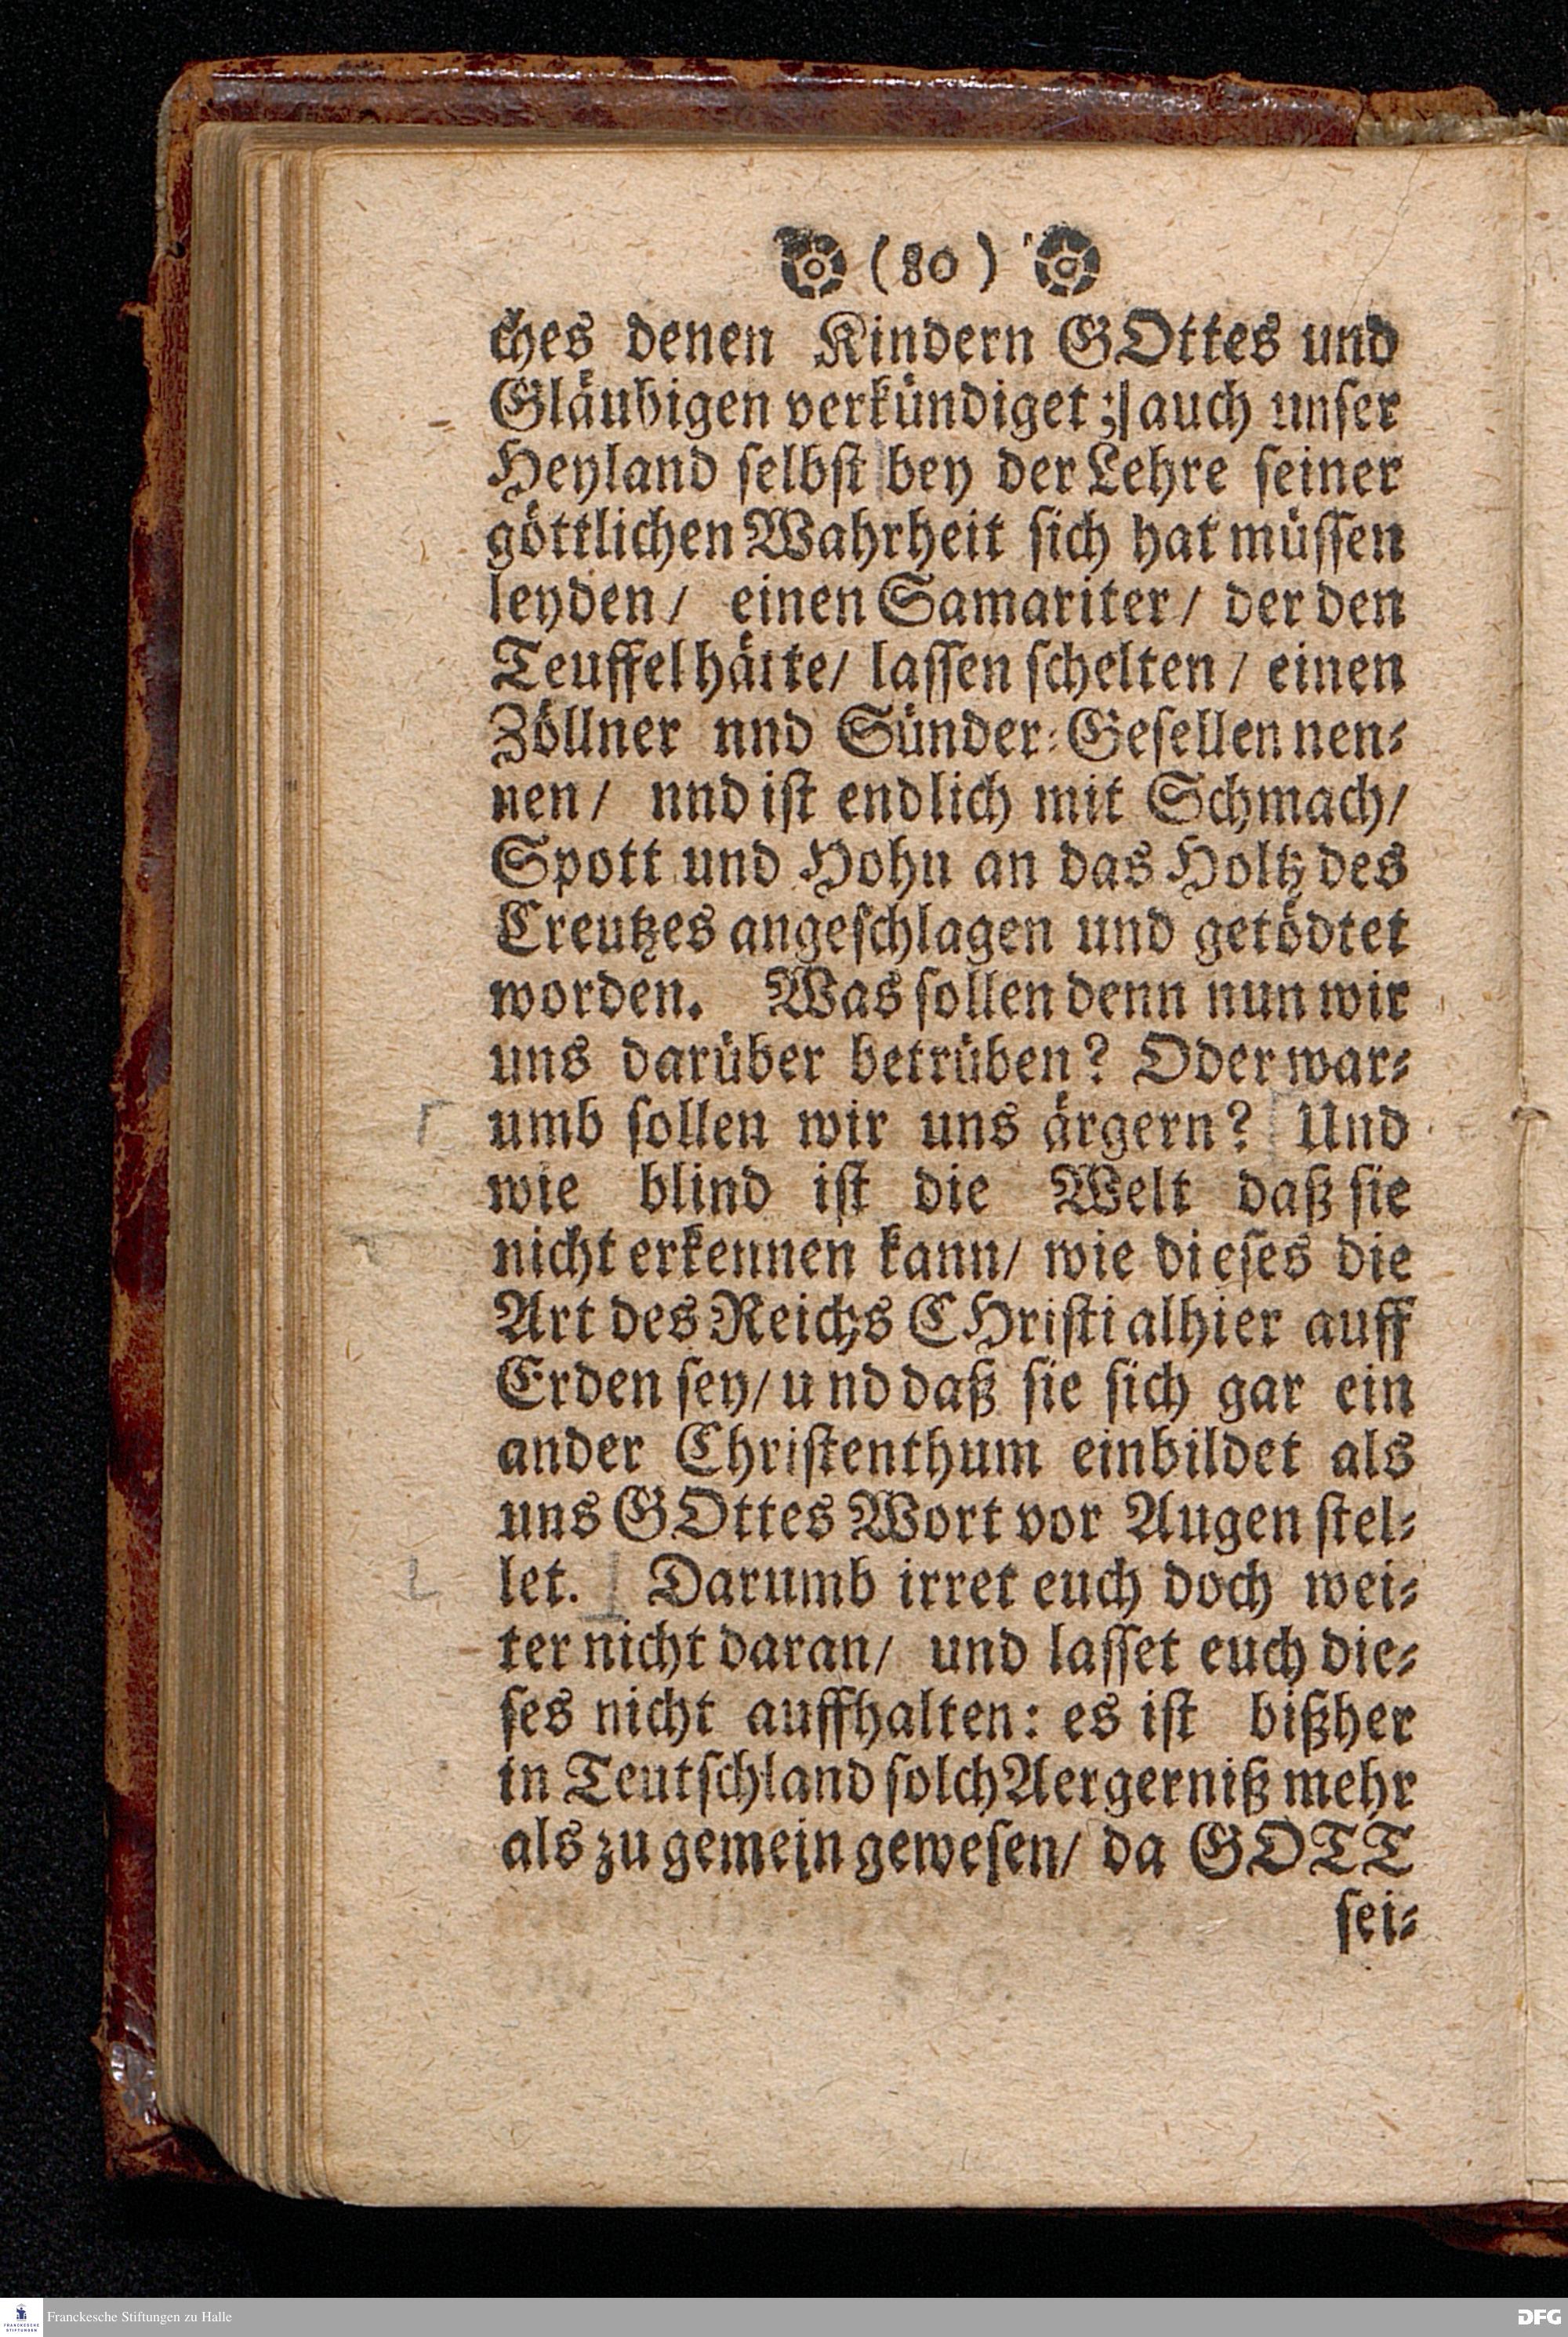 (80)
ches denen Kindern GOttes und
Gläubigen verkündiget; auch unſer
Heyland ſelbſt bey der Lehre ſeiner
göttlichen Wahrheit ſich hat müſſen
leyden/ einen Samariter/ der den
Teuffel hätte/ laſſen ſchelten/ einen
Zöllner nnd Sünder-Geſellen nen-
nen/ nnd iſt endlich mit Schmach/
Spott und Hohn an das Holtz des
Creutzes angeſchlagen und getödtet
worden. Was ſollen denn nun wir
uns darüber betrüben? Oder war-
umb ſollen wir uns ärgern? Und
wie blind iſt die Welt daß ſie
nicht erkennen kann/ wie dieſes die
Art des Reichs CHriſti alhier auff
Erden ſey/ und daß ſie ſich gar ein
ander Chriſtenthum einbildet als
uns GOttes Wort vor Augen ſtel-
let. Darumb irret euch doch wei-
ter nicht daran/ und laſſet euch die-
ſes nicht auffhalten: es iſt bißher
in Teutſchland ſolch Aergerniß mehr
als zu gemein geweſen/ da GOTT
ſei-
Franckesche Stiftungen zu Halle
DFG